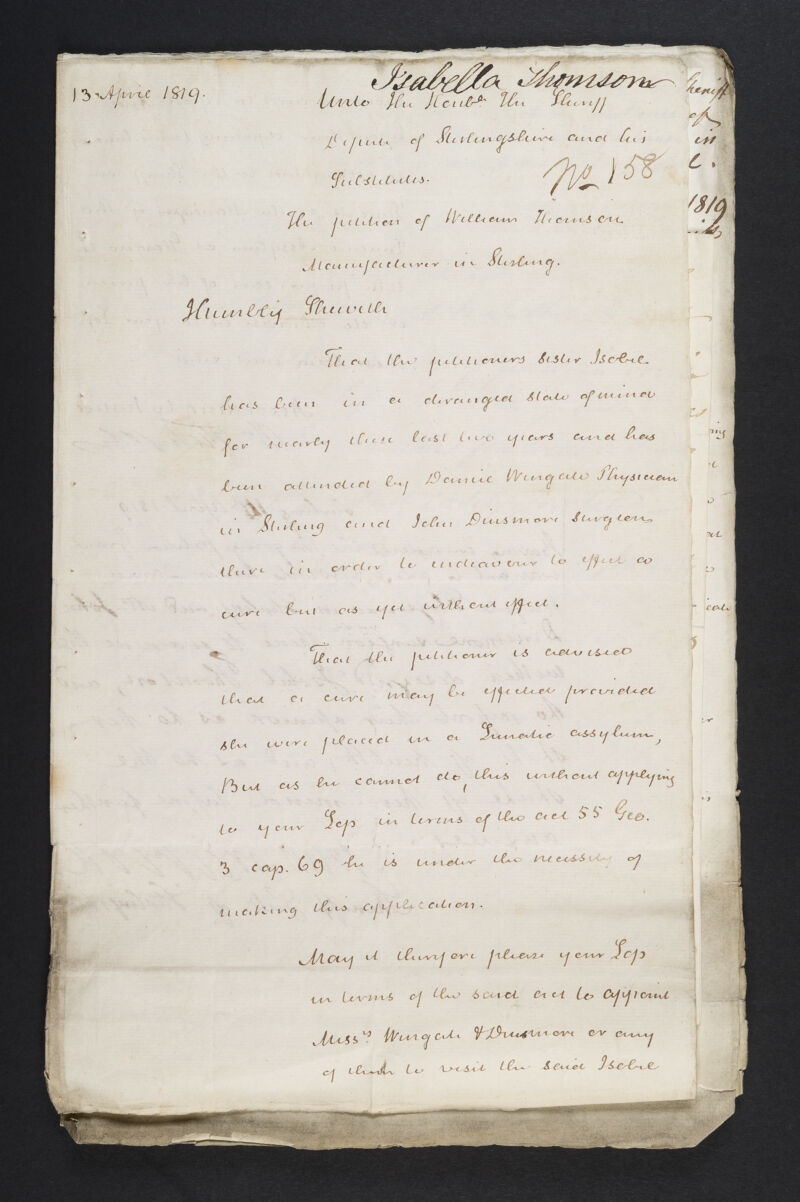 13 April 1819.
Isabella Thomson
Unto The Honble. The Sheriff
Depute of Stirlingshire and his
Substitutes.
No 158
The petition of William Thomson
Manufacturer in Stirling.
Humbly Sheweth
That the petitioners sister Isobel
has been in a deranged state of mind
for nearly these last two years and has
been attended by Daniel Wingate Physician
in Stirling and John Dinsmore Surgeon
there in order to endeavour to effect a
cure but as yet without effect.
That the petitioner is advised
that a cure may be effected provided
she were placed in a Lunatic assylum,
But as he cannot do, this without applying
to your Lop in terms of the act 55 Geo.
3 cap. 69 he is under the necessity of
making this application.
May it therefore please your Lop
in terms of the said act to appoint
Messrs. Wingate & Dinsmore or any
of them to visit the said Isobel
Sheriff
of
in
1819